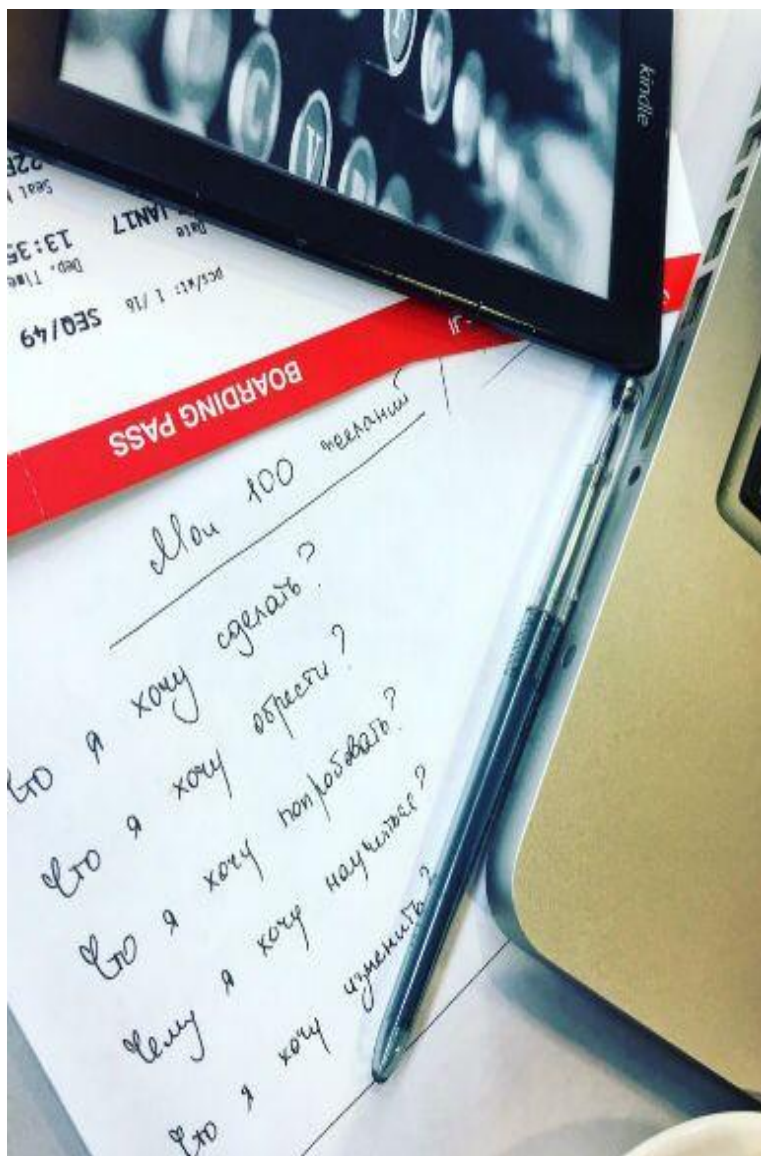 kindle
Seat
Date
JAN17
Dep. Time
13:35
pcs/wt: 1 /16
SEQ/49
BOARDING PASS
Мои 100 желаний
Что я хочу сделать?
Что я хочу обрести?
Что я хочу попробовать?
Чему я хочу научиться?
Что я хочу изменить?